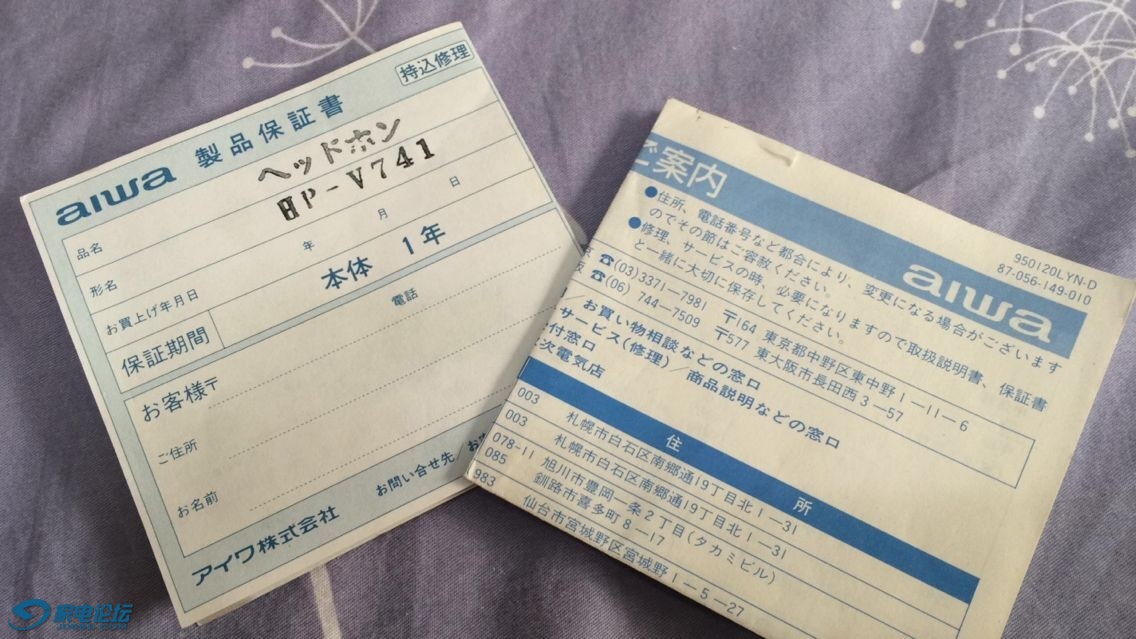 持込修理
aiwa 製品保証書
品名 ヘッドホン
形名 HP-V741
お買上げ年月日 年 月 日
保証期間 本体 1年
お客様 〒 電話
ご住所
お名前
お問い合せ先
アイワ株式会社
ご案内
aiwa
950120LYN-D
87-056-149-010
●住所、電話番号など都合により、変更になる場合がございます
のでその節はご容赦ください。
●修理、サービスの時、必要になりますので取扱説明書、保証書
と一緒に大切に保存してください。
☎(03)3371-7981 〒164 東京都中野区東中野1-11-6
阪 ☎(06) 744-7509 〒577 東大阪市長田西3-57
お買い物相談などの窓口
サービス(修理)/商品説明などの窓口
付窓口
次電気店
住所
003 札幌市白石区南郷通19丁目北1-31
003 札幌市白石区南郷通19丁目北1-31
078-11 旭川市豊岡一条2丁目(タカミビル)
085 釧路市喜多町8-17
983 仙台市宮城野区宮城野1-5-27
家电论坛